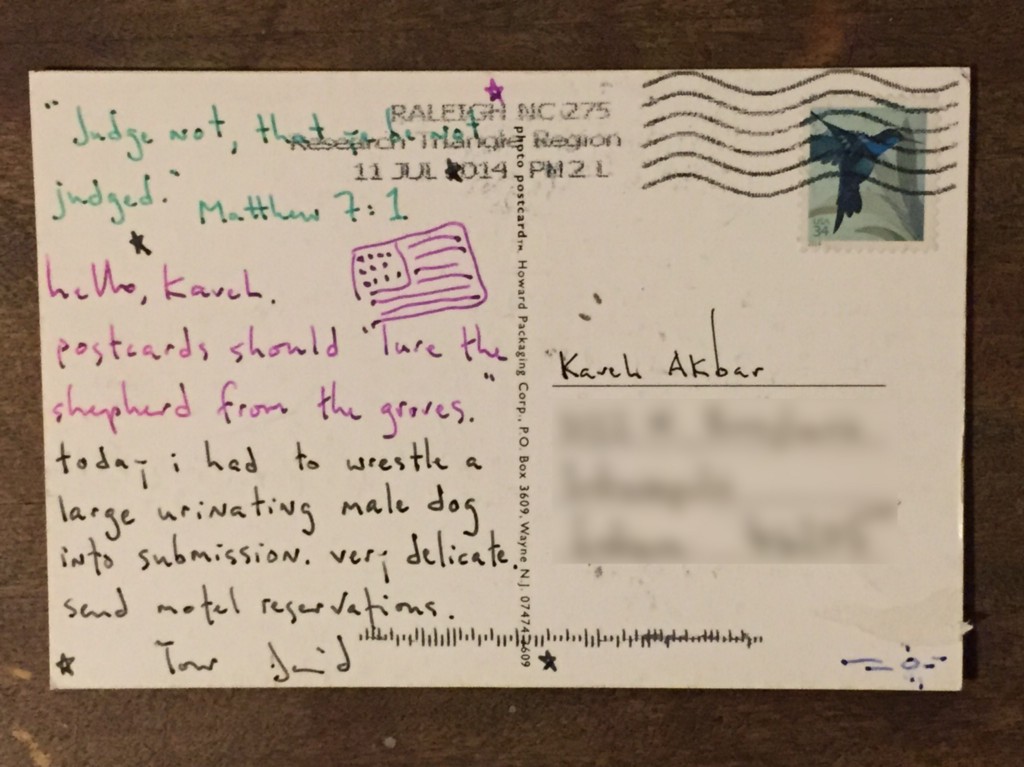 "Judge not, that ye be not
judged." Matthew 7:1
hello, Kaveh.
postcards should "lure the
shepherd from the groves."
today i had to wrestle a
large urinating male dog
into submission. very delicate.
send motel reservations.
Your David
RALEIGH NC 275
Research Triangle Region
11 JUL 2014 PM 2 L
photo postcard™ Howard Packaging Corp., P.O. Box 3609, Wayne N.J. 07474-3609
USA
34
Kaveh Akbar